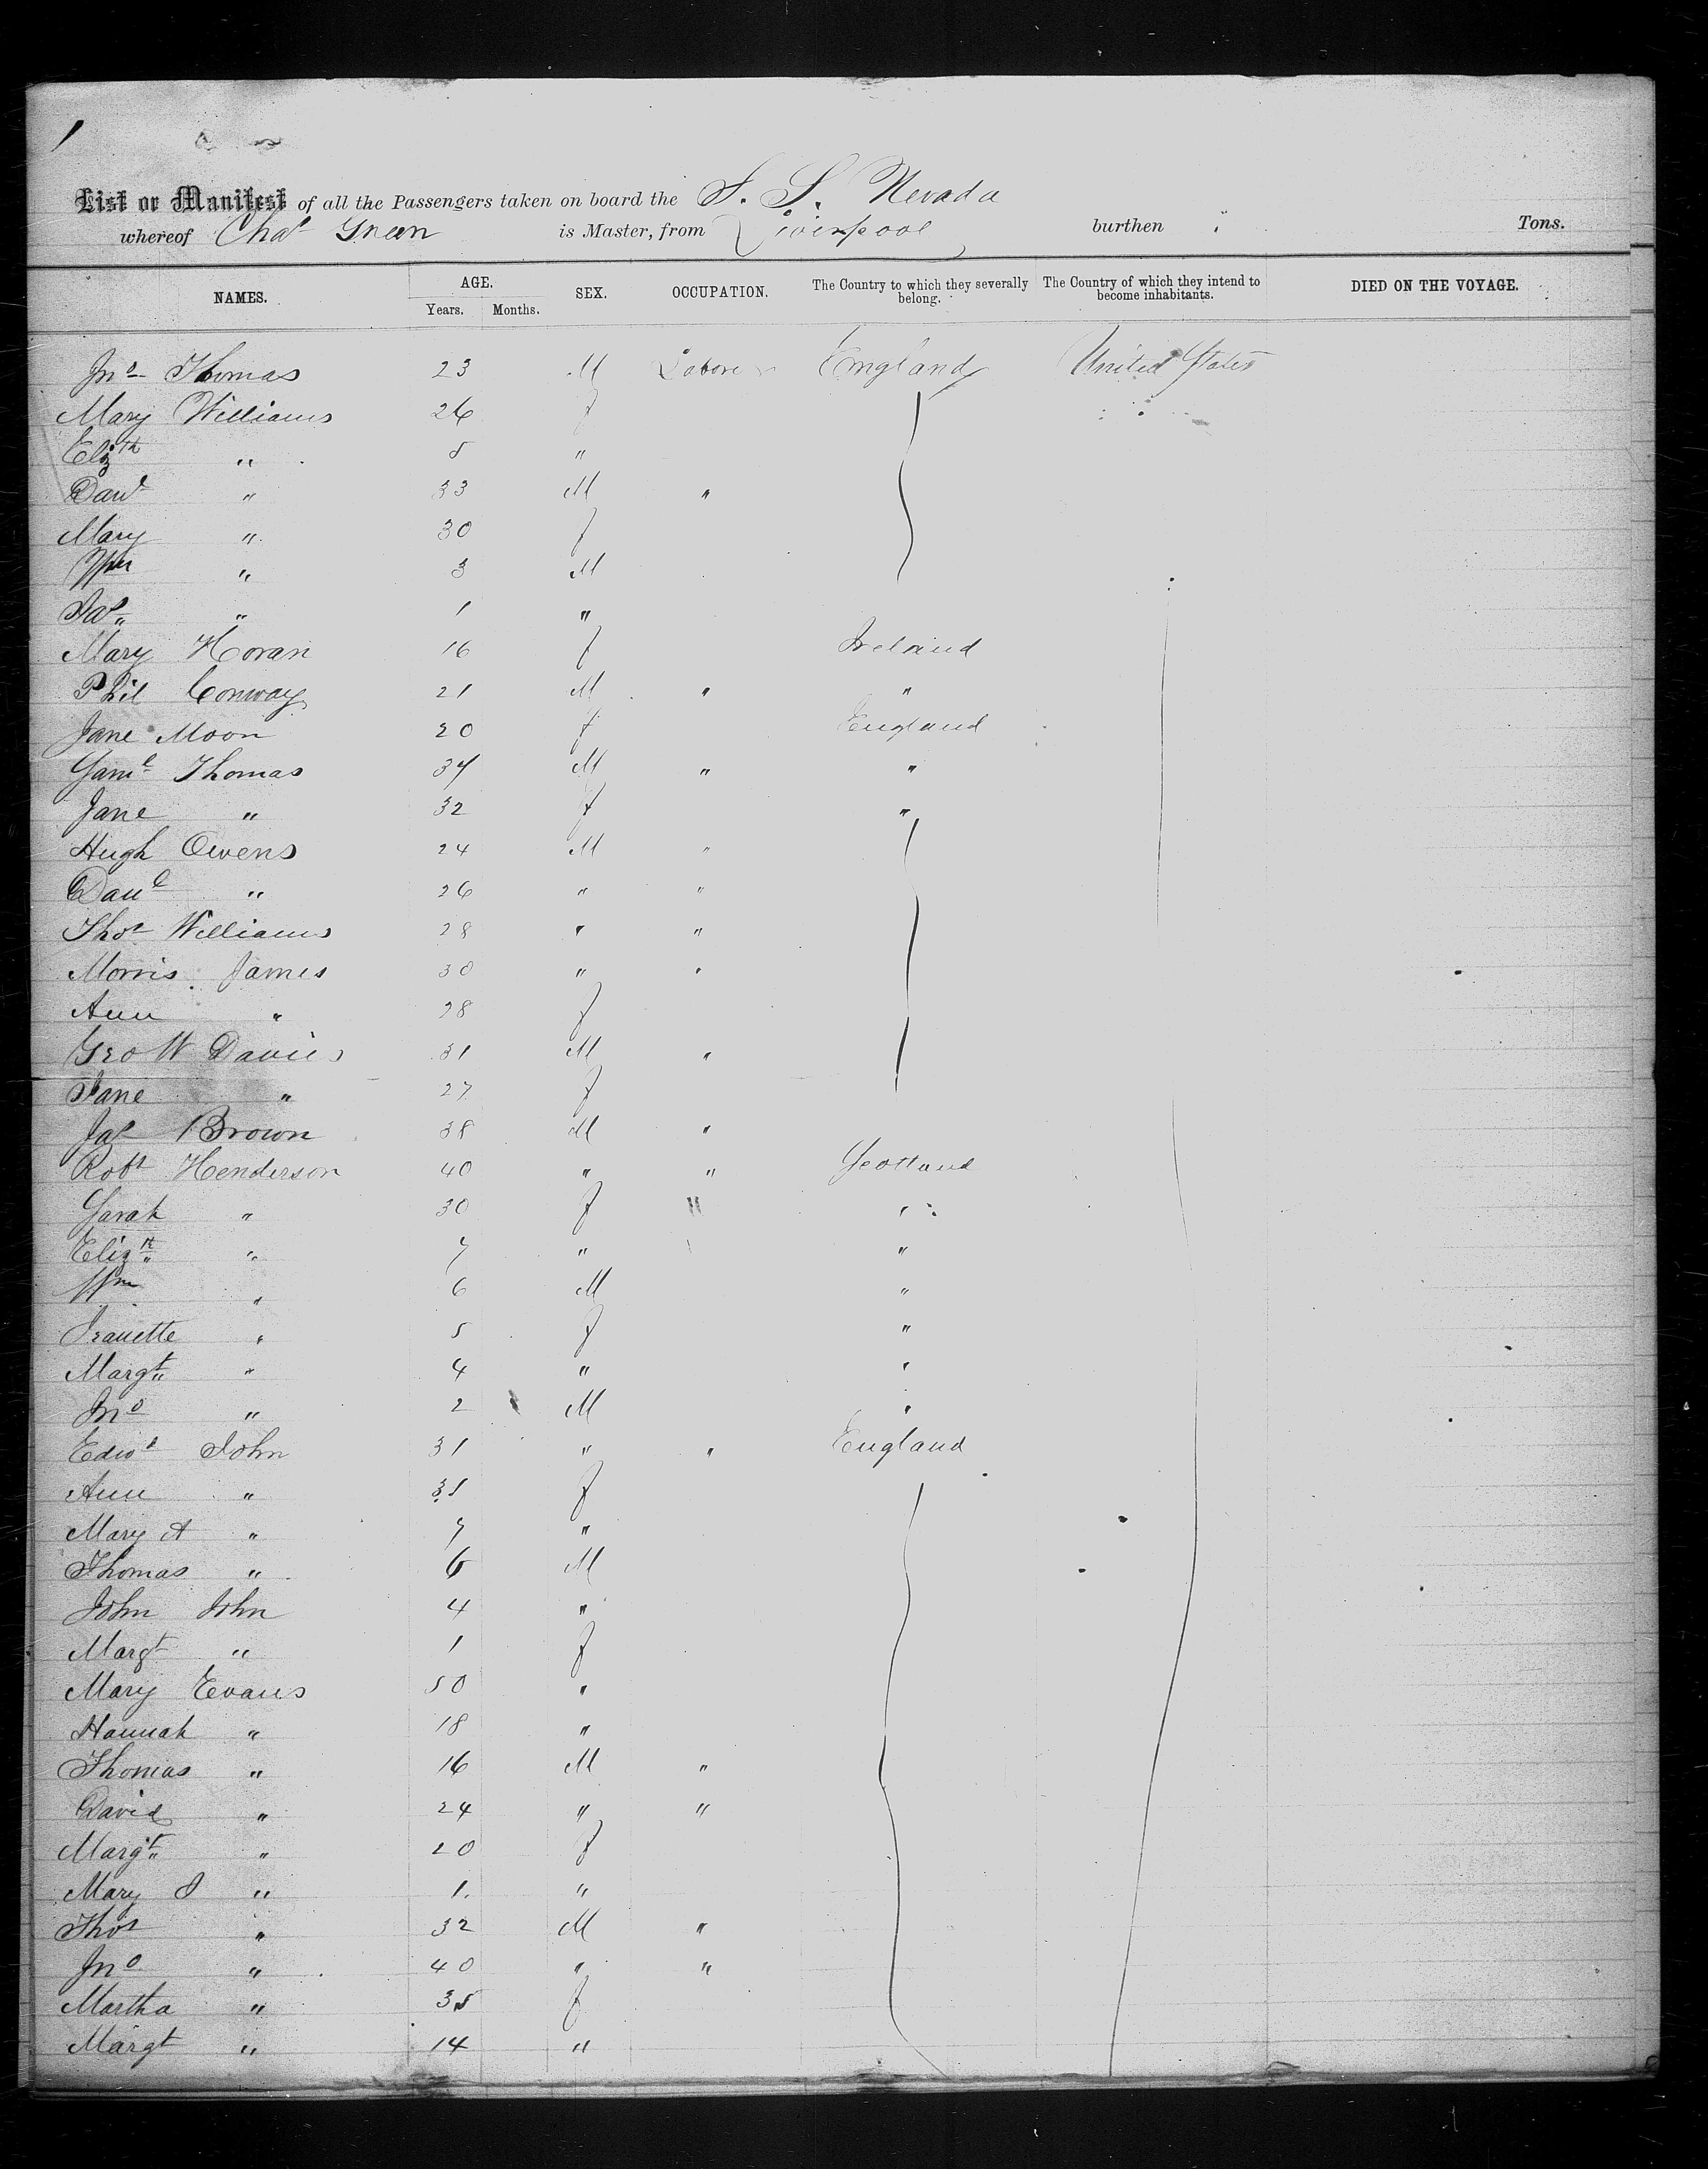 1
List or Manifest of all the Passengers taken on board the S. S. Nevada
whereof Chas Green is Master, from Liverpool burthen Tons.
NAMES. AGE. Years. Months. SEX. OCCUPATION. The Country to which they severally belong. The Country of which they intend to become inhabitants. DIED ON THE VOYAGE.
Jno Thomas 23 M Laborer England United States
Mary Williams 26 f
Elizth " 5 "
Davd " 33 M "
Mary " 30 f
Wm " 3 M
Jas " 1 "
Mary Horan 16 f Ireland
Phil Conway 21 M " "
Jane Moon 20 f England
Saml Thomas 34 M " "
Jane " 32 f "
Hugh Owens 24 M "
Danl " 26 " "
Thos Williams 28 " "
Morris James 30 " "
Ann " 28 f
Geo W Davies 31 M "
Jane " 27 f
Jas Brown 38 M "
Robt Henderson 40 " " Scotland
Sarah " 30 f " "
Elizth " 7 " "
Wm " 6 M "
Jeanette " 5 f "
Margt " 4 " "
Jno " 2 M "
Edwd John 31 " " England
Ann " 31 f
Mary A " 7 "
Thomas " 6 M
John John 4 "
Margt " 1 f
Mary Evans 50 "
Hannah " 18 "
Thomas " 16 M "
David " 24 " "
Margt " 20 f
Mary J " 1 "
Thos " 32 M "
Jno " 40 " "
Martha " 35 f
Margt " 14 "